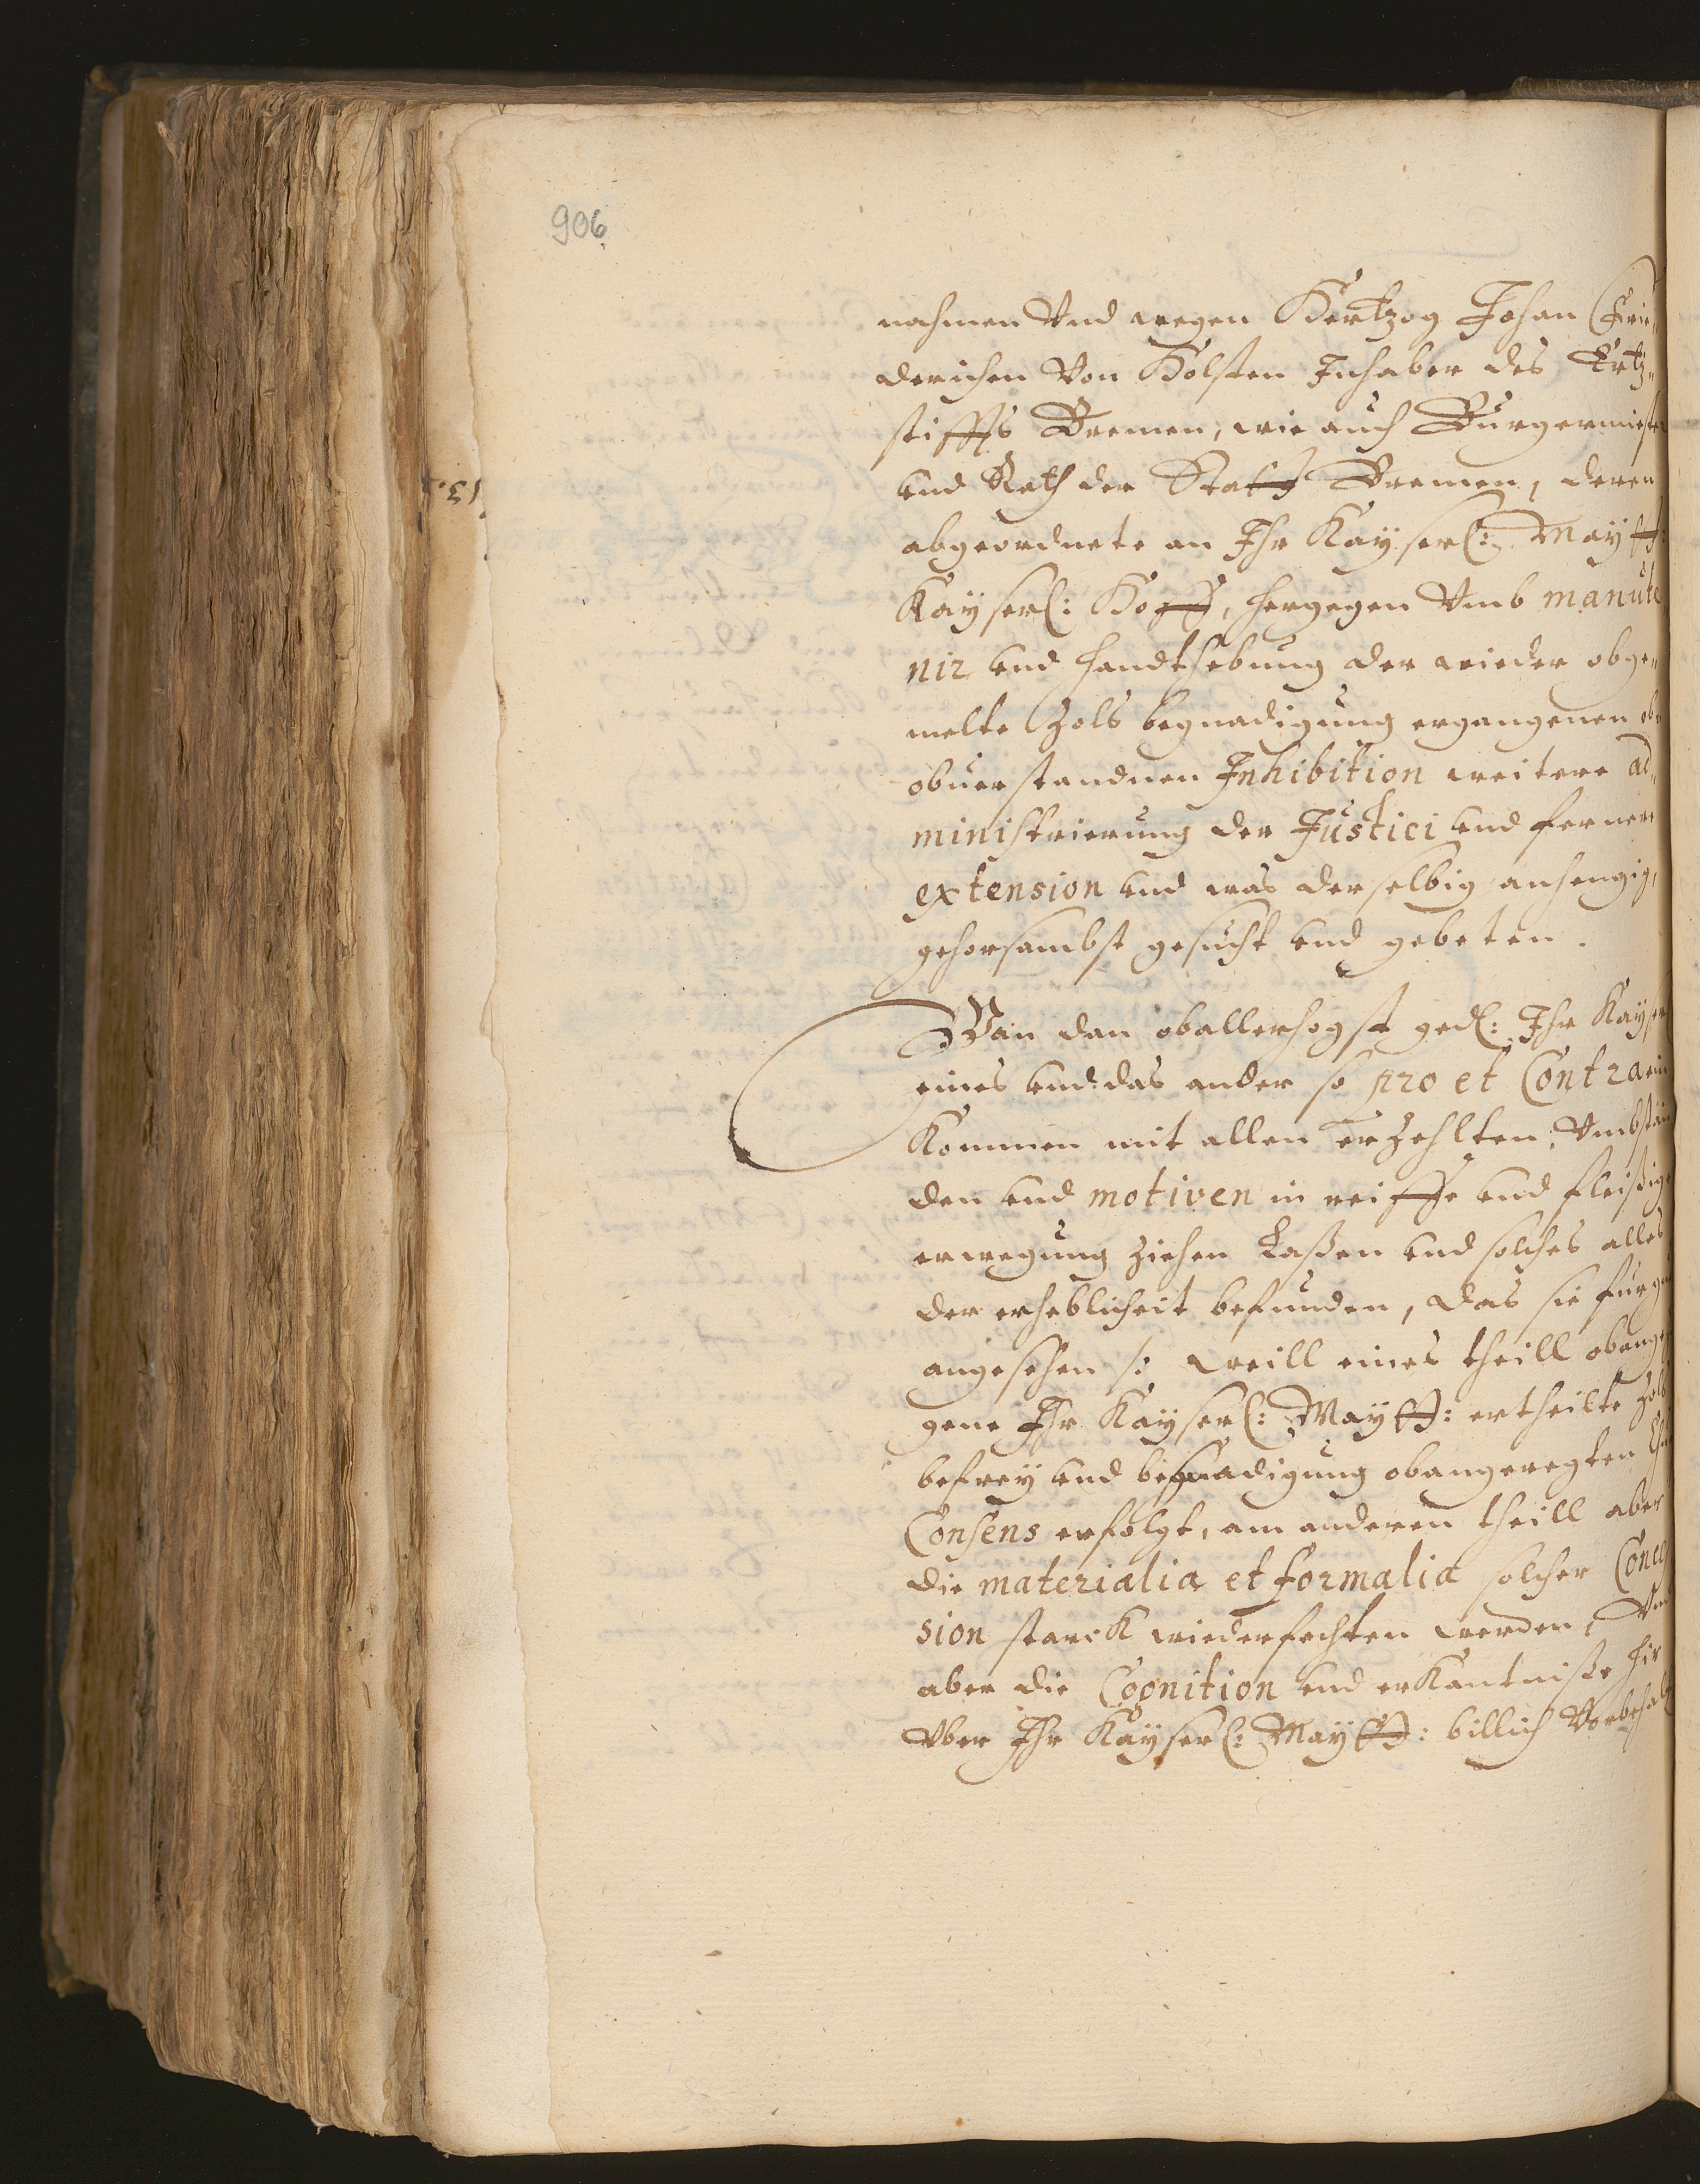 906
nahmen Vnd wegen Hertzog Johan Frie„
derichen Von Holsten Inhaber des Ertz„
stiffts Bremen, wie auch Burgermeister
vnd Rath der Statt Bremen, deren
abgeordnete an Ihr Kayserl: May tt:
Kayserl: Hoff, hergegen Vmb manute
nir vnd handthebung der wieder obge„
melte Zols begnadigung ergangenen
obuerstandnen Inhibition weitere ad„
ministrierung der Justici vnd ferner
extension vnd was derselbig anhengig,
gehorsambst gesucht vnd gebeten.
Wan dan oballerhogst ged: Ihr Kayser
eines vnd das ander so pro et Contra ein
Kommen mit allen erzehlten Vmbstän
den vnd motiven in reiffe vnd fleißige
erwegung ziehen Laßen vnd solches alles
der erheblicheit befunden, das sie fur
angesehen /: weill eines theill obange
gene Ihr Kayserl: May tt: ertheilte Zols
befrey vnd begnadigung obangeregten
Consens erfolgt, am anderen theill aber
die materialia et formalia solcher Conces
sion starck wiederfechten werden, Vnd
aber die Cognition vnd erKantnisse hir
Vber Ihr Kayserl: May tt: billich Vorbehalt